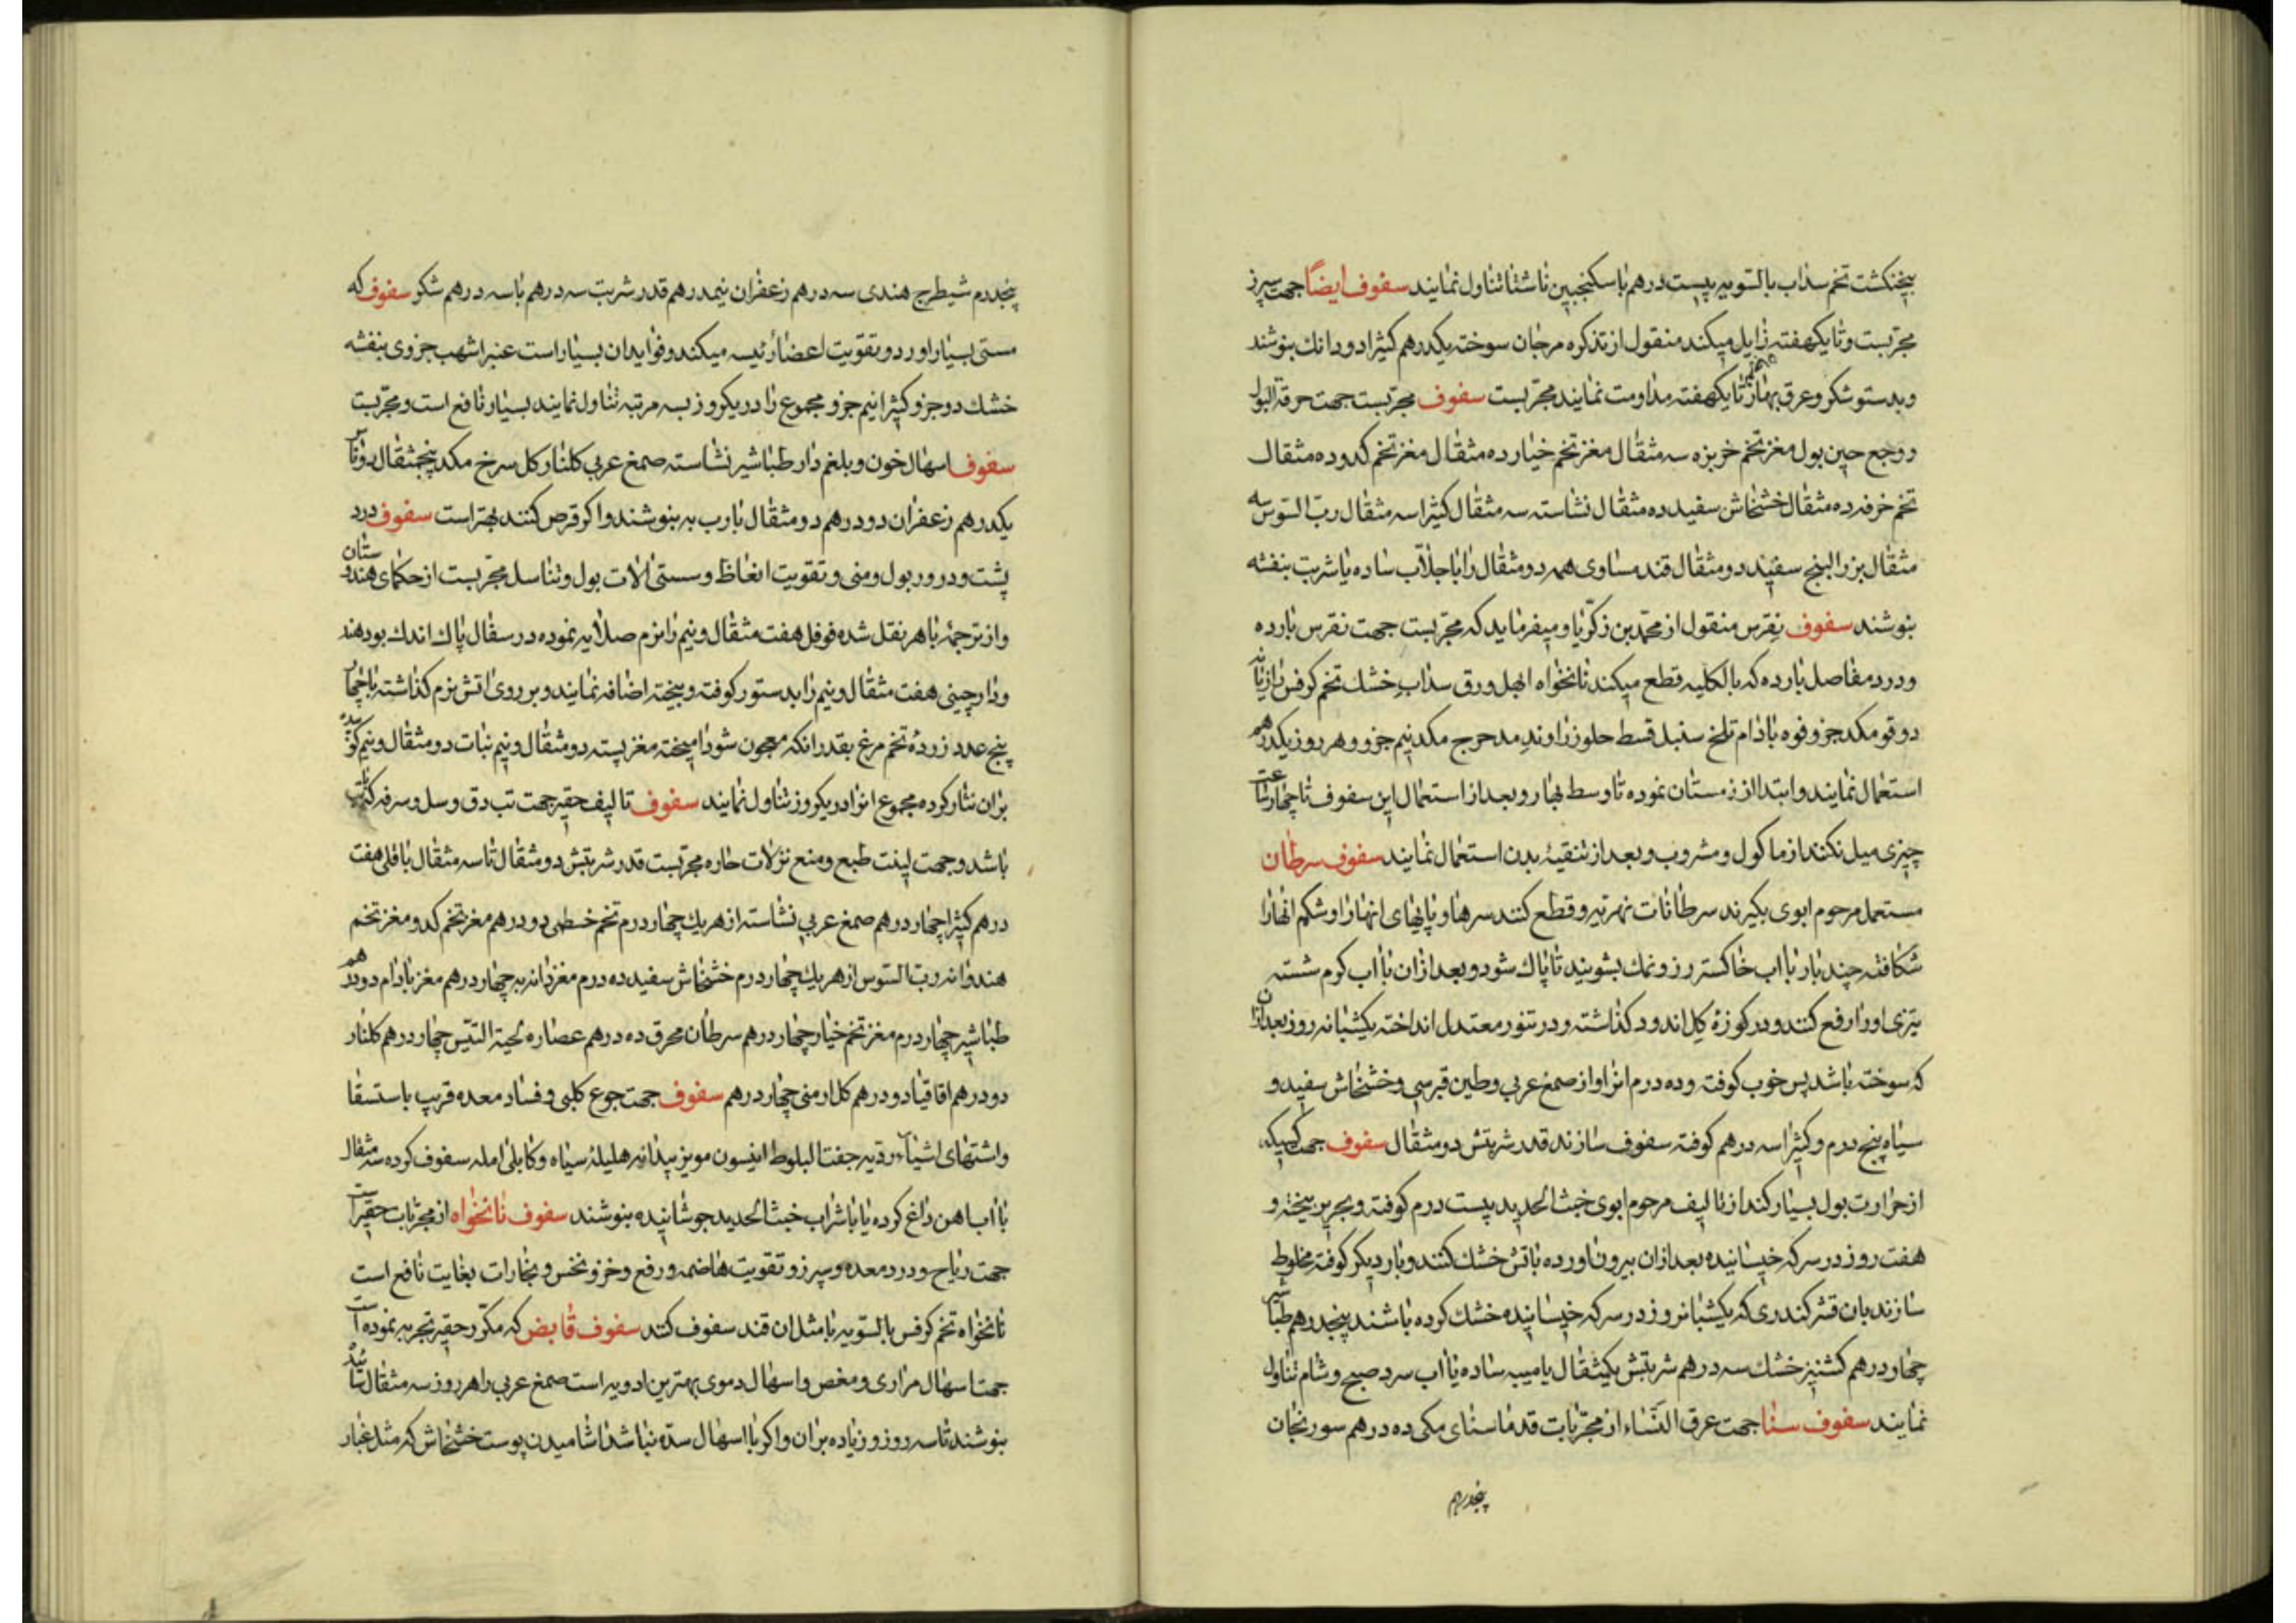 پنجنکشت تخم سداب بالسویه بیست درهم با سکنجبین ناشتا تناول نمایند سفوف ایضًا جهت سپرز
مجربست و تا یکهفته زایل میکند منقول از تذکره مرجان سوخته یکدرهم کثیرا دو دانك بنوشند
و بدستو شکر و عرق بهار تا یکهفته مداومت نمایند مجربست سفوف مجربست جهت حرقة البول
و وجع حین بول مغز تخم خربزه سه مثقال مغز تخم خیار ده مثقال مغز تخم کدو ده مثقال
تخم خرفه ده مثقال خشخاش سفید ده مثقال نشاسته سه مثقال کثیرا سه مثقال رب السوس سه
مثقال بزر البنج سفید دو مثقال قند مساوی همه دو مثقال را با جلاب ساده یا شربت بنفشه
بنوشند سفوف نقرس منقول از محمد بن زکریا و میفرماید که مجربست جهت نقرس بارده
و درد مفاصل بارده که بالکلیه قطع میکند نانخواه ابهل ورق سداب خشك تخم کرفس رازیانه
دوقو مکد جزو فوه بادام تلخ سنبل قسط حلو زراوند مدحرج مکد نیم جزو و هر روز یکدرهم
استعمال نمایند و ابتدا از زمستان نموده تا وسط بهار و بعد از استعمال این سفوف تا چهار ساعت
چیزی میل نکنند از ماکول و مشروب و بعد از تنقیهٔ بدن استعمال نمایند سفوف سرطان
مستعمل مرحوم ابوی بکیرند سرطانات نهر تیر و قطع کنند سرها و پایهای انها را و شکم انها را
شکافته چند بار با اب خاکستر رز و نمك بشویند تا پاك شود و بعد ازان با اب کرم شسته
تری او را رفع کنند و در کوزهٔ کل اندود کذاشته و در تنور معتدل انداخته یکشبانه روز بعد ازان
که سوخته باشد پس خوب کوفته و ده درم انرا و از صمغ عربی و طین قبرسی و خشخاش سفید و
سیاه پنج درم و کثیرا سه درهم کوفته سفوف سازند قدر شربتش دو مثقال سفوف جهت کسیکه
از حرارت بول بسیار کند از تالیف مرحوم ابوی خبث الحدید بیست درم کوفته و بحریر بیخته و
هفت روز در سرکه خیسانیده بعد ازان بیرون اورده باتش خشك کنند و بار دیکر کوفته مخلوط
سازند بان قشر کندری که یکشبانروز در سرکه خیسانیده خشك کرده باشند پنجدرهم طباشیر
چهار درهم کشنیز خشك سه درهم شربتش یکمثقال با میبه ساده یا اب سرد صبح و شام تناول
نمایند سفوف سنا جهت عرق النساء از مجربات قدما سنای مکی ده درهم سورنجان
پنجدرهم
پنجدرم شیطرج هندی سه درهم زعفران نیمدرهم قدر شربت سه درهم با سه درهم شکر سفوف که
مستی بسیار اورد و تقویت اعضا رئیسه میکند و فواید ان بسیار است عنبر اشهب جزوی بنفشه
خشك دو جزو کثیرا نیم جزو مجموع را در یکروز بسه مرتبه تناول نمایند بسیار نافع است و مجربست
سفوف اسهال خون و بلغم دار طباشیر نشاسته صمغ عربی کلنار کل سرخ مکد پنجمثقال
یکدرهم زعفران دو درهم دو مثقال با رب به بنوشند و اکر قرص کنند بهتر است سفوف درد
پشت و درور بول و منی و تقویت انعاظ و سستی الات بول و تناسل مجربست از حکمای هندوستان
و از ترجمهٔ باهر نقل شده فوفل هفت مثقال و نیم را نرم صلایه نموده در سفال پاك اندك بو دهند
و دارچینی هفت مثقال و نیم را بدستور کوفته و بیخته اضافه نمایند و بر روی اتش نرم کذاشته با
پنج عدد زردهٔ تخم مرغ بقدر انکه معجون شود امیخته مغز پسته دو مثقال و نیم نبات دو مثقال و نیم کوبیده
بران نثار کرده مجموع انرا در یکروز تناول نمایند سفوف تالیف حقیر جهت تب دق و سل و سرفه که با تب
باشد و جهت لینت طبع و منع نزلات حاره مجربست قدر شربتش دو مثقال تا سه مثقال باقلی هفت
درهم کثیرا چهار درهم صمغ عربی نشاسته از هر یك چهار درم تخم خطمی دو درهم مغز تخم کدو مغز تخم
هندوانه رب السوس از هر یك چهار درم خشخاش سفید ده درم مغز دانه به چهار درهم مغز بادام دو درهم
طباشیر چهار درم مغز تخم خیار چهار درهم سرطان محرق ده درهم عصاره لحیة التیس چهار درهم کلنار
دو درهم اقاقیا دو درهم کل ارمنی چهار درهم سفوف جهت جوع کلبی و فساد معده قریب باستسقا
و اشتهای اشیاء ردیه جفت البلوط انیسون مویز بیدانه هلیلهٔ سیاه و کابلی امله سفوف کرده سه مثقال
با اب اهن داغ کرده یا با شراب خبث الحدید جوشانیده بنوشند سفوف نانخواه از مجربات حقیر است
جهت ریاح و درد معده و سپرز و تقویت هاضمه و رفع وخز و نخس و بخارات بغایت نافع است
نانخواه تخم کرفس بالسویه با مثل ان قند سفوف کنند سفوف قابض که مکرر حقیر تجربه نموده است
جهت اسهال مراری و مغص و اسهال دموی بهترین ادویه است صمغ عربی را هر روز سه مثقال سائیده
بنوشند تا سه روز و زیاده بران و اکر با اسهال سده نباشد اشامیدن پوست خشخاش که مثل غبار